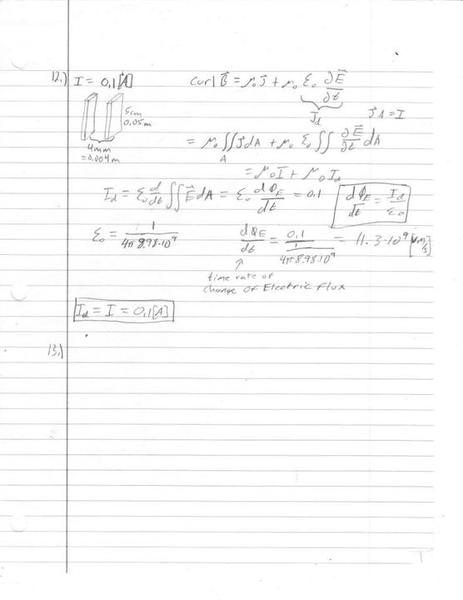 12.) I = 0,1[A] Curl B⃗ = μ₀ J⃗ + μ₀ ε₀ ∂E⃗/∂t
J⃗_d
J A = I
5cm
0.05m
4mm
= 0.004m
= μ₀ ∬_A J⃗dA + μ₀ ε₀ ∬ ∂E⃗/∂t dA
= μ₀I + μ₀ I_d
I_d = ε₀ d/dt ∬ E⃗ dA = ε₀ dΦ_E/dt = 0.1 dΦ_E/dt = I_d/ε₀
ε₀ = 1/(4π 8.98·10⁹) dΦ_E/dt = 0.1/(1/(4π 8.98·10⁹)) = 11.3·10⁹ [V·m/s]
time rate of
change of Electric flux
I_d = I = 0,1[A]
13.)